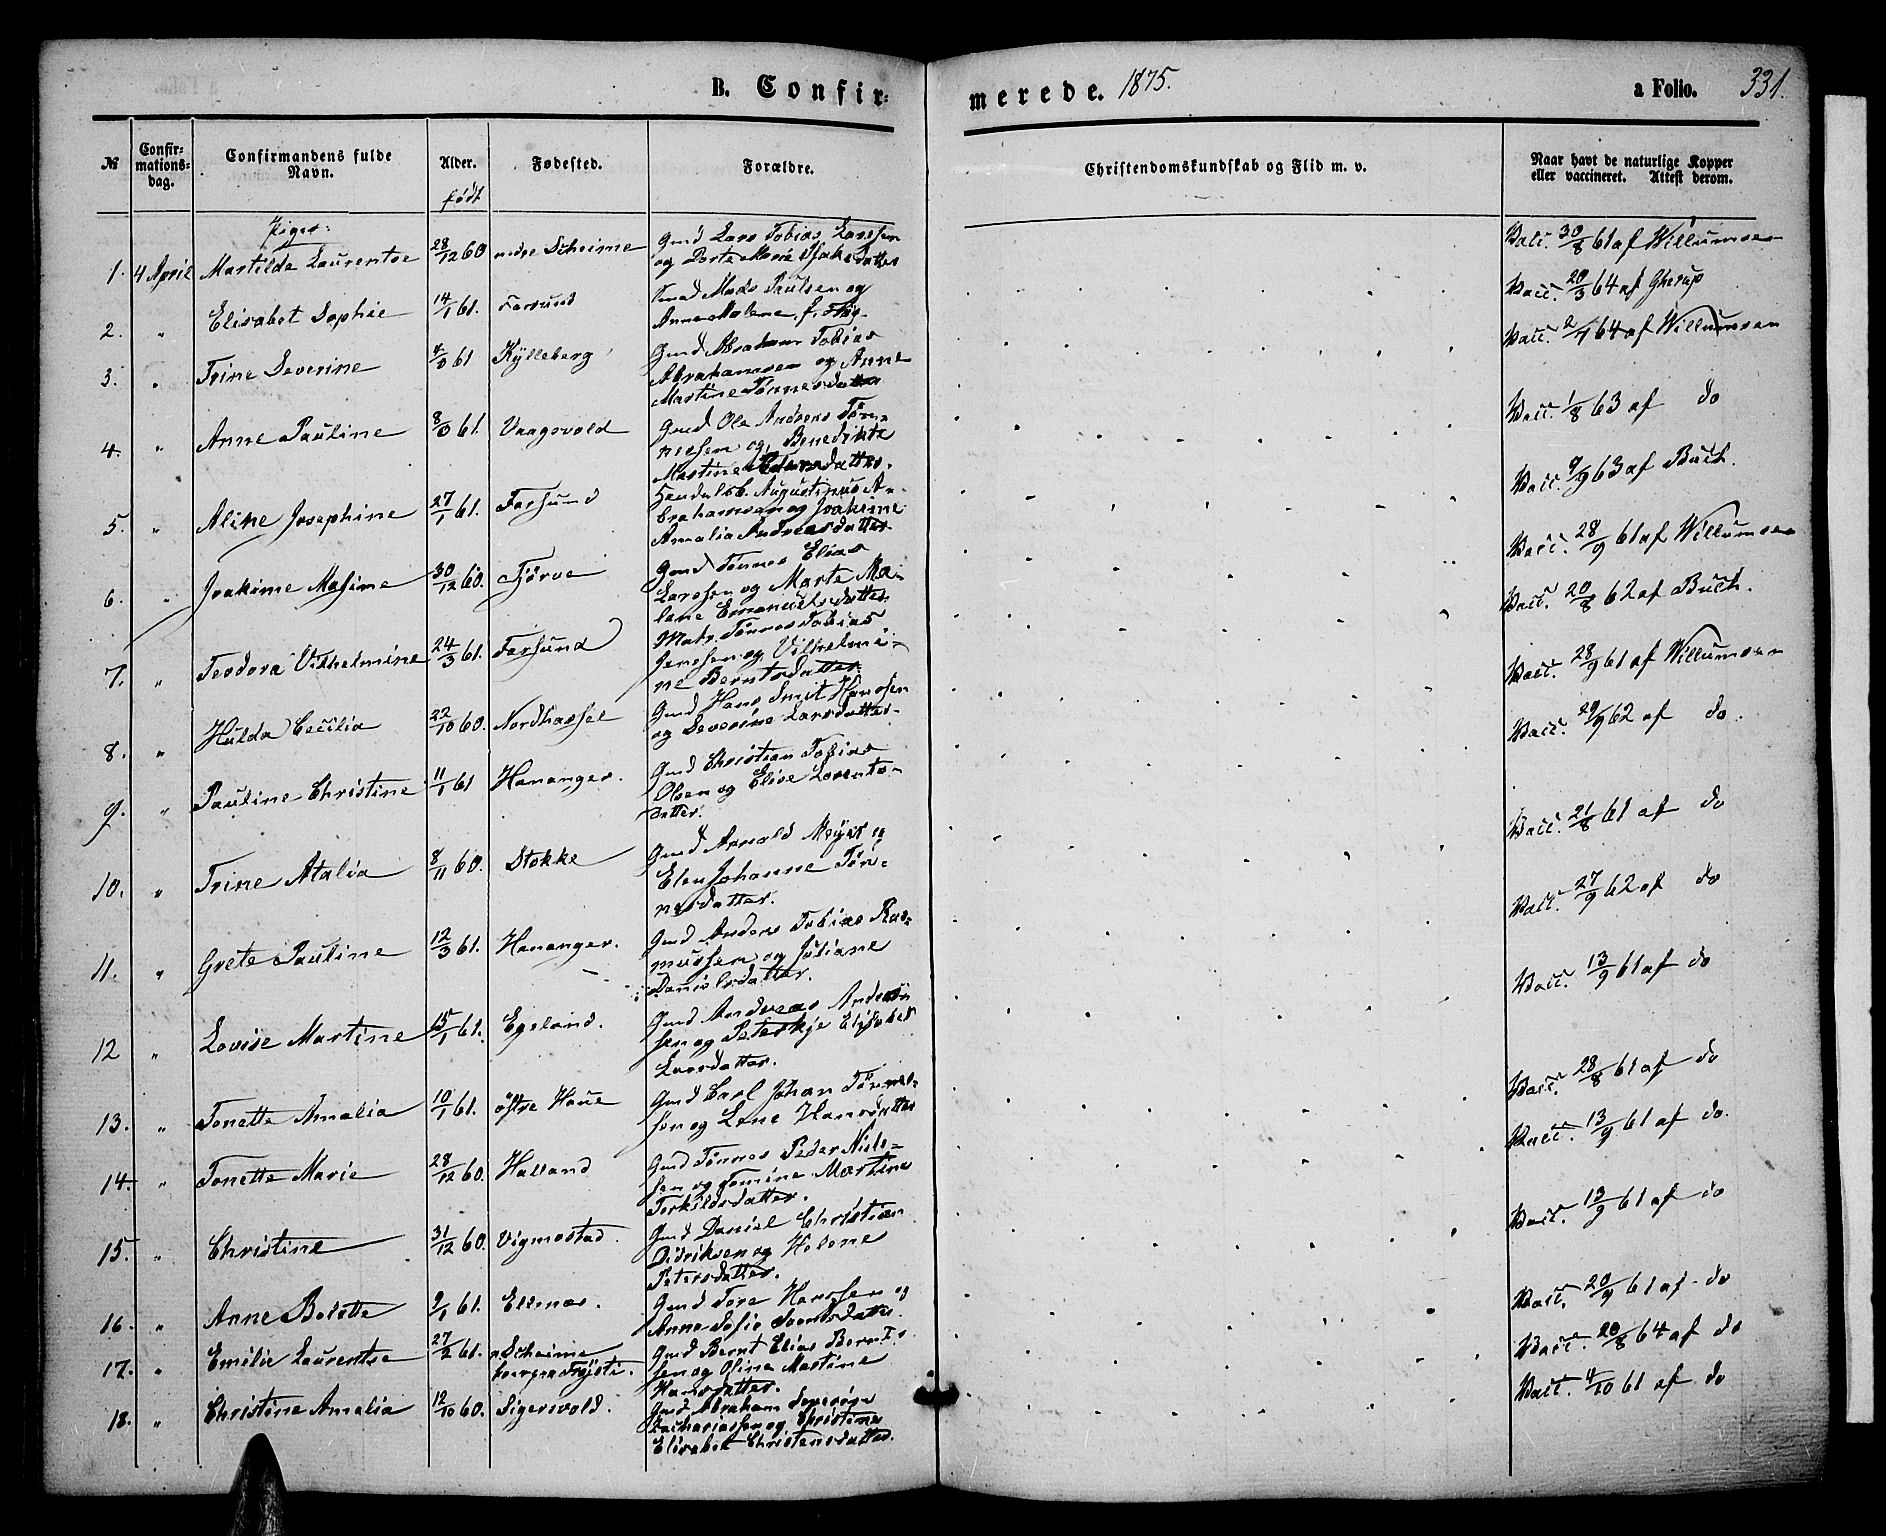 B. Confir-
merede. 1875.
a Folio. 331.
№
Confir-
mations-
dag.
Confirmandens fulde
Navn.
Alder.
født
Fødested.
Forældre.
Christendomskundskab og Flid m. v.
Naar havt de naturlige Kopper
eller vaccineret. Attest derom.
Piger:
1. 4 April Martilde Laurentse 28/12 60 nedre Scheime Gmd Lars Tobias Larssen
og Dorte Marie
Vacc. 30/8 61 af Willumsen
2. " Elisabet Sophie 14/1 61. Farsund Mads Paulsen og
Anne Malene
Vacc. 20/3 64 af
3. " Trine Severine 61 Kylleberg Gmd Abraham Tobias
Abrahamsen og Anne
Martine Tønnesdatter
Vacc. 64 af Willumsen
4. " Anne Pauline 61. Vaagsvold Gmd Ole Andreas Tøn-
nessen og Benedikte
Martine Pedersdatter.
Vacc. 1/8 63 af do
5. " Aline Josephine 27/1 61. Farsund Handelsb. Augustinus A-
brahamsen og Joakime
Amalia Andreasdatter
Vacc. 9/9 63 af Buch.
6. " Joakime Masime 30/12 60. Tjørve Gmd Tønnes Elias
Larssen og Marte Ma-
lene Emanuelsdatter
Vacc. 28/9 61 af Willumsen
7. " Teodora Vilhelmine 24/3 61. Farsund Matr. Tønnes Tobias
Jenssen og Vilhelmi-
ne Berntsdatter
Vacc. 20/8 62 af Buch.
8. " Hulda Cecilia 22/10 60. Nordhassel Gmd Hans Smit Hanssen
og Severine Larsdatter
Vacc. 28/9 61 af Willumsen
9. " Pauline Christine 11/1 61 Hananger. Gmd Christian Tobias
Olsen og Elise Lorents-
datter.
Vacc. 29/9 62 af do.
10. " Trine Atalia 8/11 60. Stokke Gmd Arnold Meyer og
Elen Johanne Tøn-
nesdatter.
Vacc. 21/8 61 af do
11. " Grete Pauline 12/3 61. Hananger. Gmd Anders Tobias Ras-
mussen og Juliane
Danielsdatter.
Vacc. 27/9 62 af do
12 " Lovise Martine 15/1 61. Egeland. Gmd Andreas Anders-
sen og Peterkje Elisabet
Larsdatter.
Vacc. 13/9 61 af do
13. " Tonette Amalia 10/1 61. østre Haue Gmd Carl Johan Tønnes-
sen og Lene Hansdatter
Vacc. 28/8 61 af do
14. " Tonette Marie 28/12 60. Halland Gmd Tønnes Peder Niels-
sen og Tomine Martine
Torkildsdatter.
Vacc. 13/9 61 af do.
15. " Christine 31/12 60. Vigmostad. Gmd Daniel Christian
Didriksen og Helene
Petersdatter.
Vacc. 13/9 61 af do
16. " Anne Bolette 9/1 61. Ellenes. Gmd Tore Hanssen og
Anne Sofie
Vacc. 20/9 61 af do
17. " Emilie Laurentse 27/2 61. Scheime
Gmd Bernt Elias Bernt-
sen og Oline Martine
Hansdatter.
Vacc. 20/8 64 af do
18. " Christine Amalia 12/10 60. Sigersvold. Gmd Abraham
Zachariassen og Christine
Elisabet Christensdatter.
Vacc. 4/10 61 af do